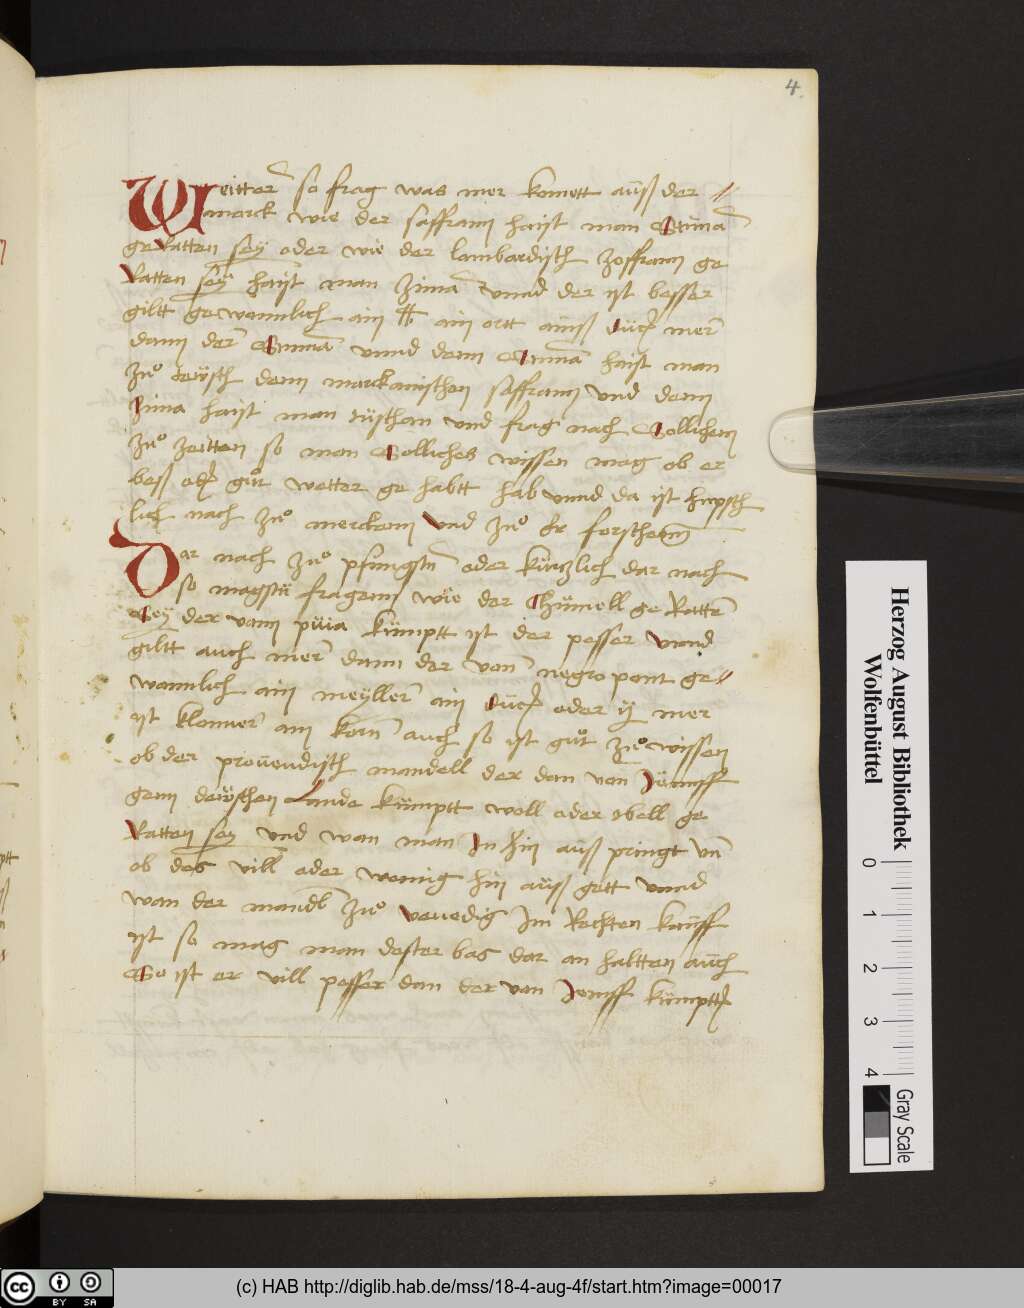 4.
Weitter so frag was mer komett auß der
marck wie der saffrann haist man Stima
geRatten sey oder wie der lambardisch zoffrann ge
Ratten sey haist man Zima vnnd der ist besser
giltt gewonnlich ain ℔ ain ortt ainß ducʒ mer
dann der vnnd denn haist man
zuͦ teÿsch denn marckanischen saffrann vnd denn
Zima haist man tuschan vnd frag nach Sollichem
zuͦ zeitten so man Solliches wissen mag ob er
bess odʒ guͦt wetter ge habtt hab vnnd da ist hupsch
lich nach zuͦ merckenn vnd zuͦ Er forschenn
Dar nach zuͦ pfingstn oder kurczlich dar nach
so magstu fragenn wie der Thümell ge Ratten
Sey der vann püia kümptt ist der pesser vnnd
giltt auch mer dann der von negropont ge
wonnlich ain meÿller ain ducʒ oder ij mer
ist klenner am korn auch so ist guͦt zuͦ wissen
ob der prouendisch mandell der dan von Jenuff
genn deüschen Lande kümptt woll oder vbell ge
Ratten sey vnd wan man In hin auß pringt vn
ob des vill oder wennig hin auß gett vnnd
wan der mandl zuͦ venedig Im Rechten kauff
ist so mag man dester bas dar an haltten auch
So ist er vill pesser dan der von Jenuff kümpttʒ
Herzog August Bibliothek
Wolfenbüttel
0 1 2 3 4
Gray Scale
cc BY SA
(c) HAB http://diglib.hab.de/mss/18-4-aug-4f/start.htm?image=00017